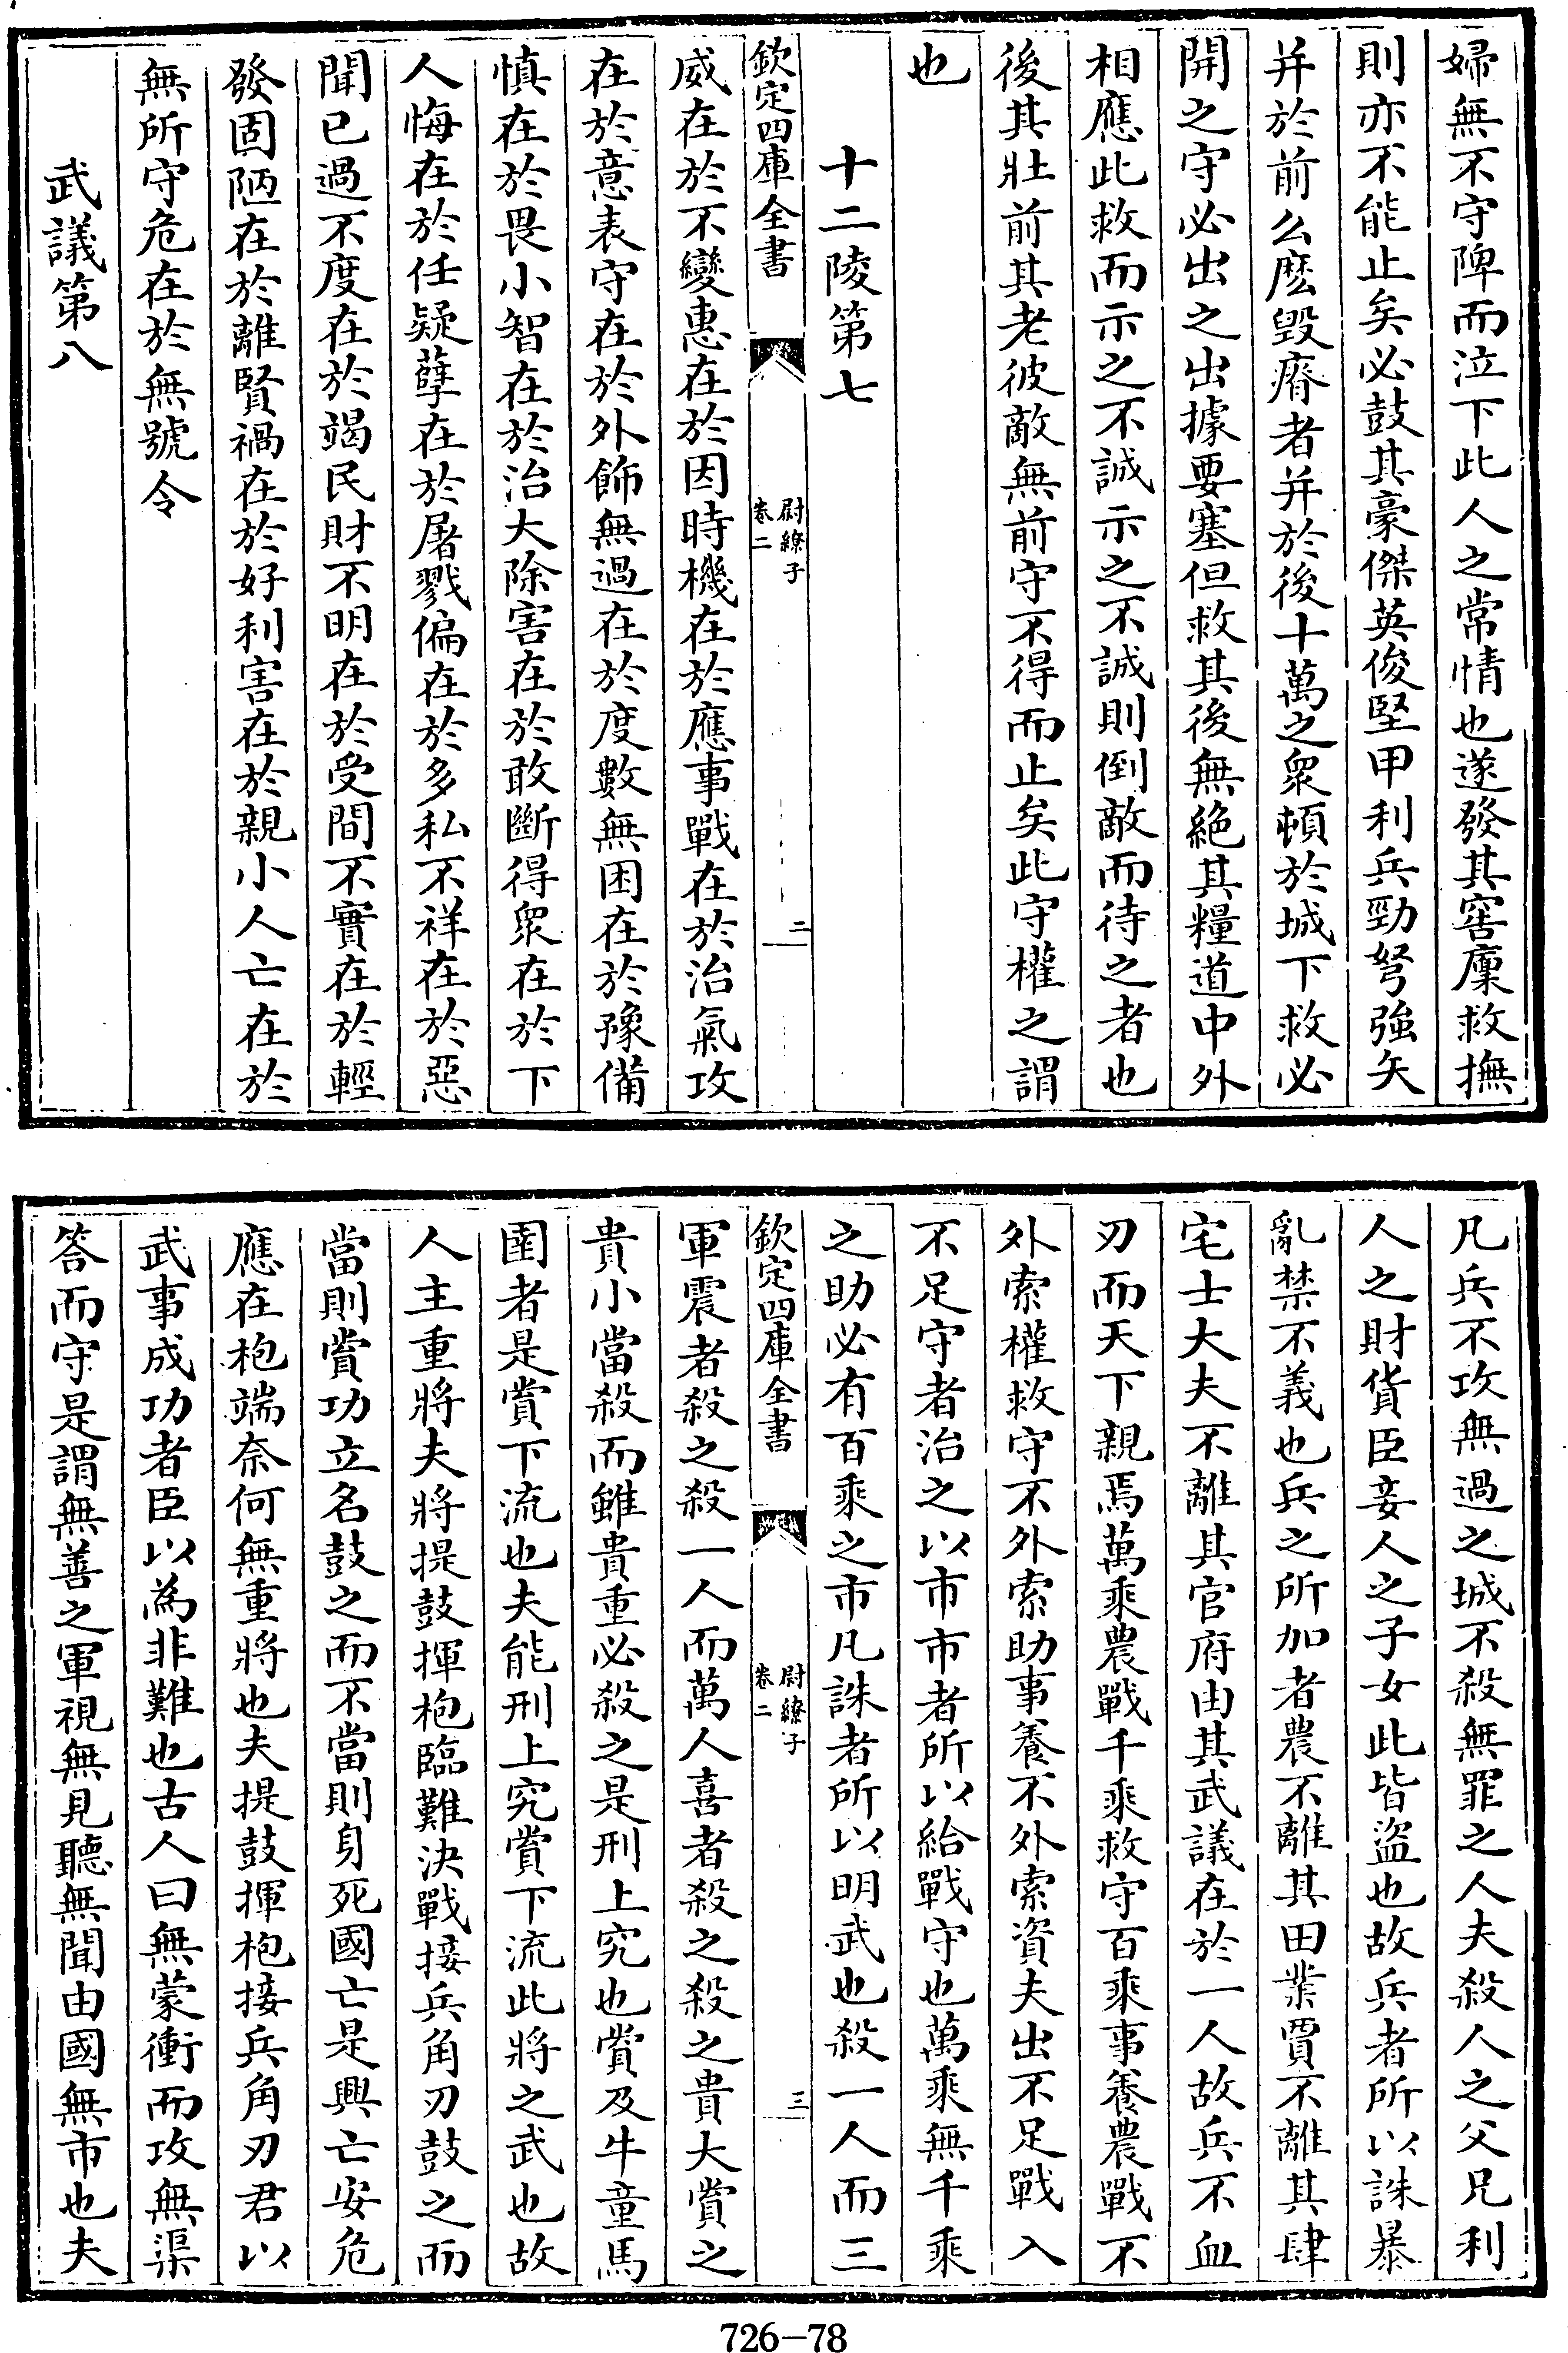 婦無不守陴而泣下此人之常情也遂發其窖廩救撫
則亦不能止矣必鼓其豪傑英俊堅甲利兵勁弩強矢
并於前么麽毀瘠者并於後十萬之衆頓於城下救必
開之守必出之出據要塞但救其後無絶其糧道中外
相應此救而示之不誠示之不誠則倒敵而待之者也
後其壯前其老彼敵無前守不得而止矣此守權之謂
也
十二陵第七
欽定四庫全書
尉繚子
卷二
二
威在於不變惠在於因時機在於應事戰在於治氣攻
在於意表守在於外飾無過在於度數無困在於豫備
慎在於畏小智在於治大除害在於敢斷得衆在於下
人悔在於任疑孽在於屠戮偏在於多私不祥在於惡
聞已過不度在於竭民財不明在於受間不實在於輕
發固陋在於離賢禍在於好利害在於親小人亡在於
無所守危在於無號令
武議第八
凡兵不攻無過之城不殺無罪之人夫殺人之父兄利
人之財貨臣妾人之子女此皆盜也故兵者所以誅暴
亂禁不義也兵之所加者農不離其田業賈不離其肆
宅士大夫不離其官府由其武議在於一人故兵不血
刃而天下親焉萬乘農戰千乘救守百乘事養農戰不
外索權救守不外索助事養不外索資夫出不足戰入
不足守者治之以市市者所以給戰守也萬乘無千乘
之助必有百乘之市凡誅者所以明武也殺一人而三
欽定四庫全書
尉繚子
卷二
三
軍震者殺之殺一人而萬人喜者殺之殺之貴大賞之
貴小當殺而雖貴重必殺之是刑上究也賞及牛童馬
圉者是賞下流也夫能刑上究賞下流此將之武也故
人主重將夫將提鼓揮枹臨難決戰接兵角刃鼓之而
當則賞功立名鼓之而不當則身死國亡是興亡安危
應在枹端奈何無重將也夫提鼓揮枹接兵角刃君以
武事成功者臣以為非難也古人曰無蒙衝而攻無渠
答而守是謂無善之軍視無見聽無聞由國無市也夫
726-78